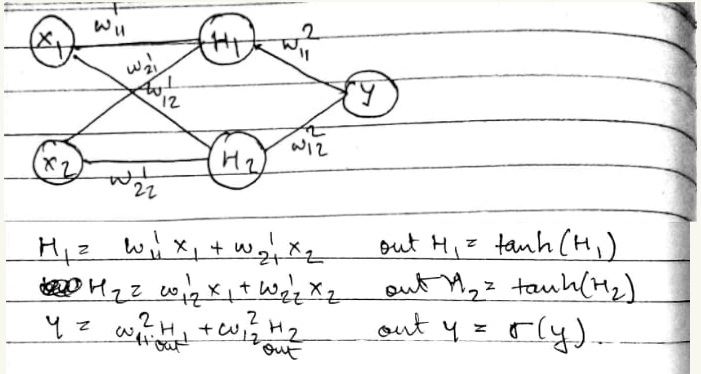 w₁₁¹
X₁
H₁
w₁₁²
w₂₁¹
w₁₂¹
y
X₂
H₂
w₁₂²
w₂₂¹
H₁ = w₁₁¹ x₁ + w₂₁¹ x₂ out H₁ = tanh(H₁)
H₂ = w₁₂¹ x₁ + w₂₂¹ x₂ out H₂ = tanh(H₂)
Y = w₁₁² H₁ out + w₁₂² H₂ out out y = σ(y).